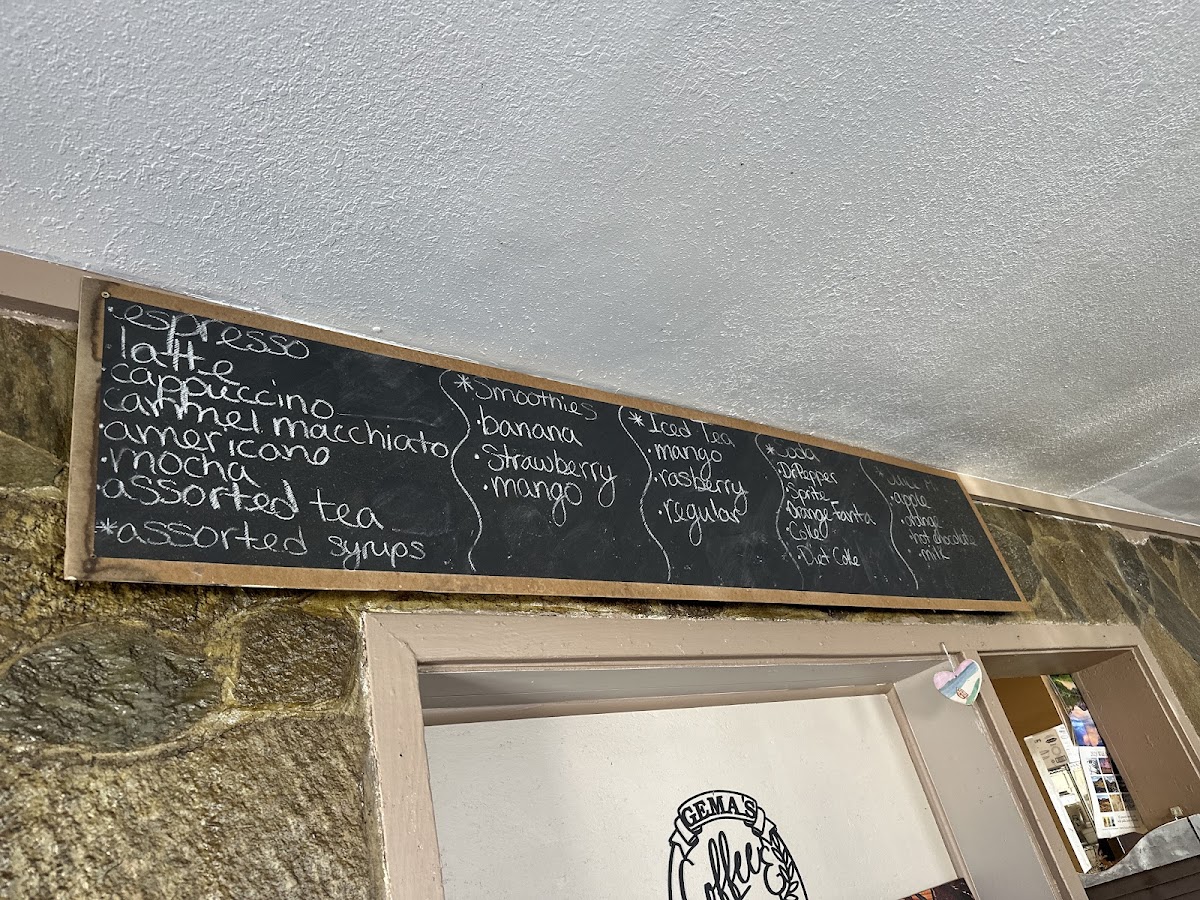 ·espresso
latte
·cappuccino
carmel macchiato
·americano
·mocha
·assorted tea
*assorted syrups
*Smoothies
·banana
·Strawberry
·mango
*Iced Tea
·mango
·rasberry
·regular
*Soda
·Dr.Pepper
·Sprite
·Orange Fanta
·Coke
·Diet Coke
·apple
·orange
·hot chocolate
·milk
GEMA'S
Coffee